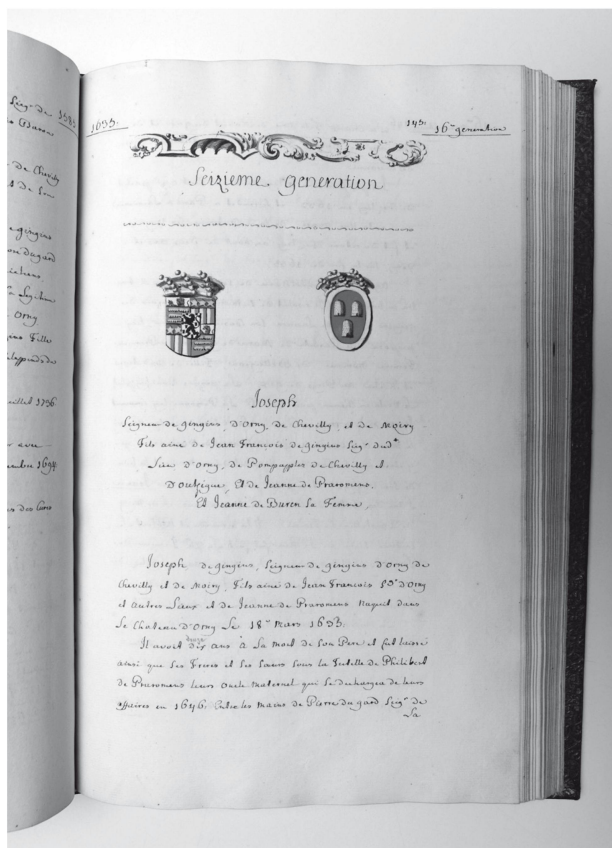 1633.
145.
16me generation
Seizieme generation
Joseph
Seigneur de gingins, d'Orny, de Chevilly, et de Moiry
Fils ainé de Jean Francois de gingins Seigr dudt
Lieu d'Orny, de Pompapples de Chevilly et
Et de Jeanne de Praromens.
Et Jeanne de Buren Sa Femme,
Joseph de gingins, Seigneur de gingins d'Orny de
Chevilly et de Moiry, Fils ainé de Jean Francois Sgr d'Orny
et autres Lieux et de Jeanne de Praromens naquit dans
Le Chateau d'Orny Le 18e Mars 1633.
Il avoit dix ans à La mort de Son Pere et fut laissé
ainsi que Ses Freres et Ses Sœurs Sous la Tutelle de Philibert
de Praromens leurs Oncle Maternel qui Se dechargea de leurs
affaires en 1646. Entre les mains de Pierre du gard Seigr de
La
Seigr de 1585
de Chevilly
et de Son
de gingins
Orny
gins Fille
juillet 1736
1694